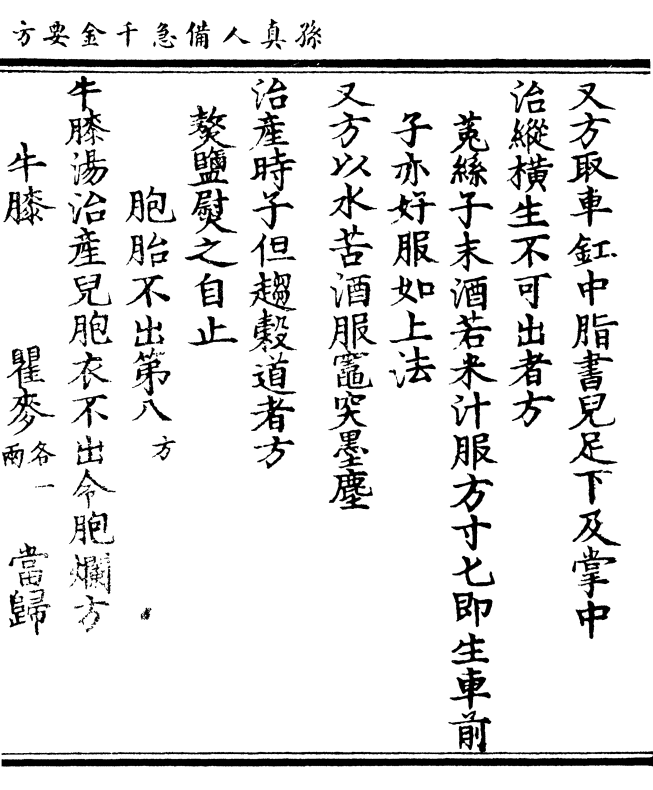 孫真人備急千金要方
又方取車釭中脂書兒足下及掌中
治縱橫生不可出者方
菟絲子末酒若米汁服方寸匕即生車前
子亦好服如上法
又方以水苦酒服竈突墨塵
治產時子但趨穀道者方
熬鹽熨之自止
胞胎不出第八方
牛膝湯治產兒胞衣不出令胞爛方
牛膝 瞿麥各一兩 當歸